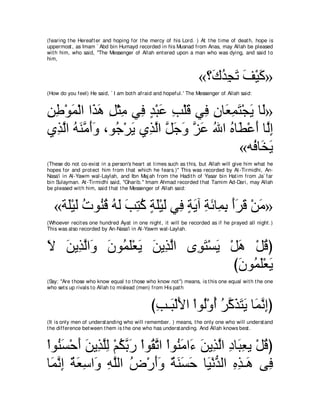 (fearing the Hereafter and hoping for the mercy of his Lord. ) At the time of death, hope is
uppermost, as Imam `Abd bin Humayd recorded in his Musnad from Anas, may Allah be pleased
with him, who said, "The Messenger of Allah entered upon a man who was dying, and said to
him,
«كَيْفَ تَجِدُكَ؟»
(How do you feel) He said, `I am both afraid and hopeful.' The Messenger of Allah said:
«لَا يَجْتَمِعَانِ فِي قَلْبِ عَبْدٍ فِي مِثْلِ هَذَا الْمَوْطِنِ
إِلَّا أَعْطَاهُ اللهُ عَزَّ وَجَلَّ الَّذِي يَرْجُو، وَأَمَّنَهُ الَّذِي
يَخَافُه»
(These do not co-exist in a person's heart at times such as this, but Allah will give him what he
hopes for and protect him from that which he fears.)" This was recorded by At-Tirmidhi, An-
Nasa'i in Al-Yawm wal-Laylah, and Ibn Majah from the Hadith of Yasar bin Hatim from Ja`far
bin Sulayman. At-Tirmidhi said, "Gharib." Imam Ahmad recorded that Tamim Ad-Dari, may Allah
be pleased with him, said that the Messenger of Allah said:
«مَنْ قَرَأَ بِمِائَةِ آيَةٍ فِي لَيْلَةٍ كُتِبَ لَهُ قُنُوتُ لَيْلَة»
(Whoever recites one hundred Ayat in one night, it will be recorded as if he prayed all night.)
This was also recorded by An-Nasa'i in Al-Yawm wal-Laylah.
(قُلْ هَلْ يَسْتَوِى الَّذِينَ يَعْلَمُونَ وَالَّذِينَ لاَ
يَعْلَمُونَ)
(Say: "Are those who know equal to those who know not") means, is this one equal with the one
who sets up rivals to Allah to mislead (men) from His path
(إِنَّمَا يَتَذَكَّرُ أُوْلُواْ الاٌّلْبَـبِ)
(It is only men of understanding who will remember. ) means, the only one who will understand
the difference between them is the one who has understanding. And Allah knows best.
(قُلْ يعِبَادِ الَّذِينَ ءَامَنُواْ اتَّقُواْ رَبَّكُمْ لِلَّذِينَ أَحْسَنُواْ
فِى هَـذِهِ الدُّنْيَا حَسَنَةٌ وَأَرْضُ اللَّهِ وَاسِعَةٌ إِنَّمَا